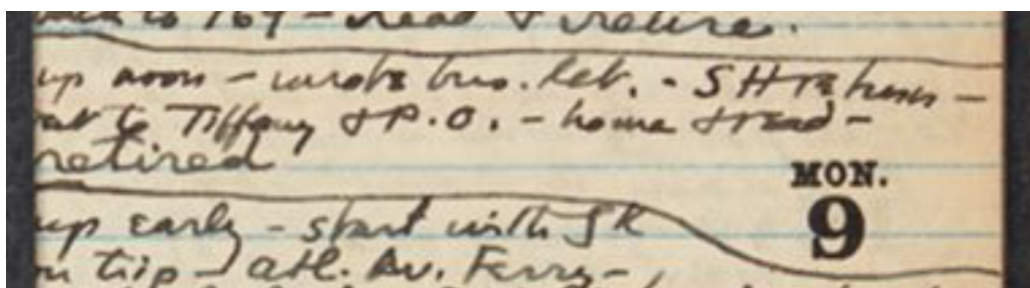 to 169 - read & retire.
up noon - wrote bus. let. - SH returns -
out to Tiffany & P.O. - home & read -
retired
MON.
9
up early - start with SK
on trip - atl. Av. Ferry -